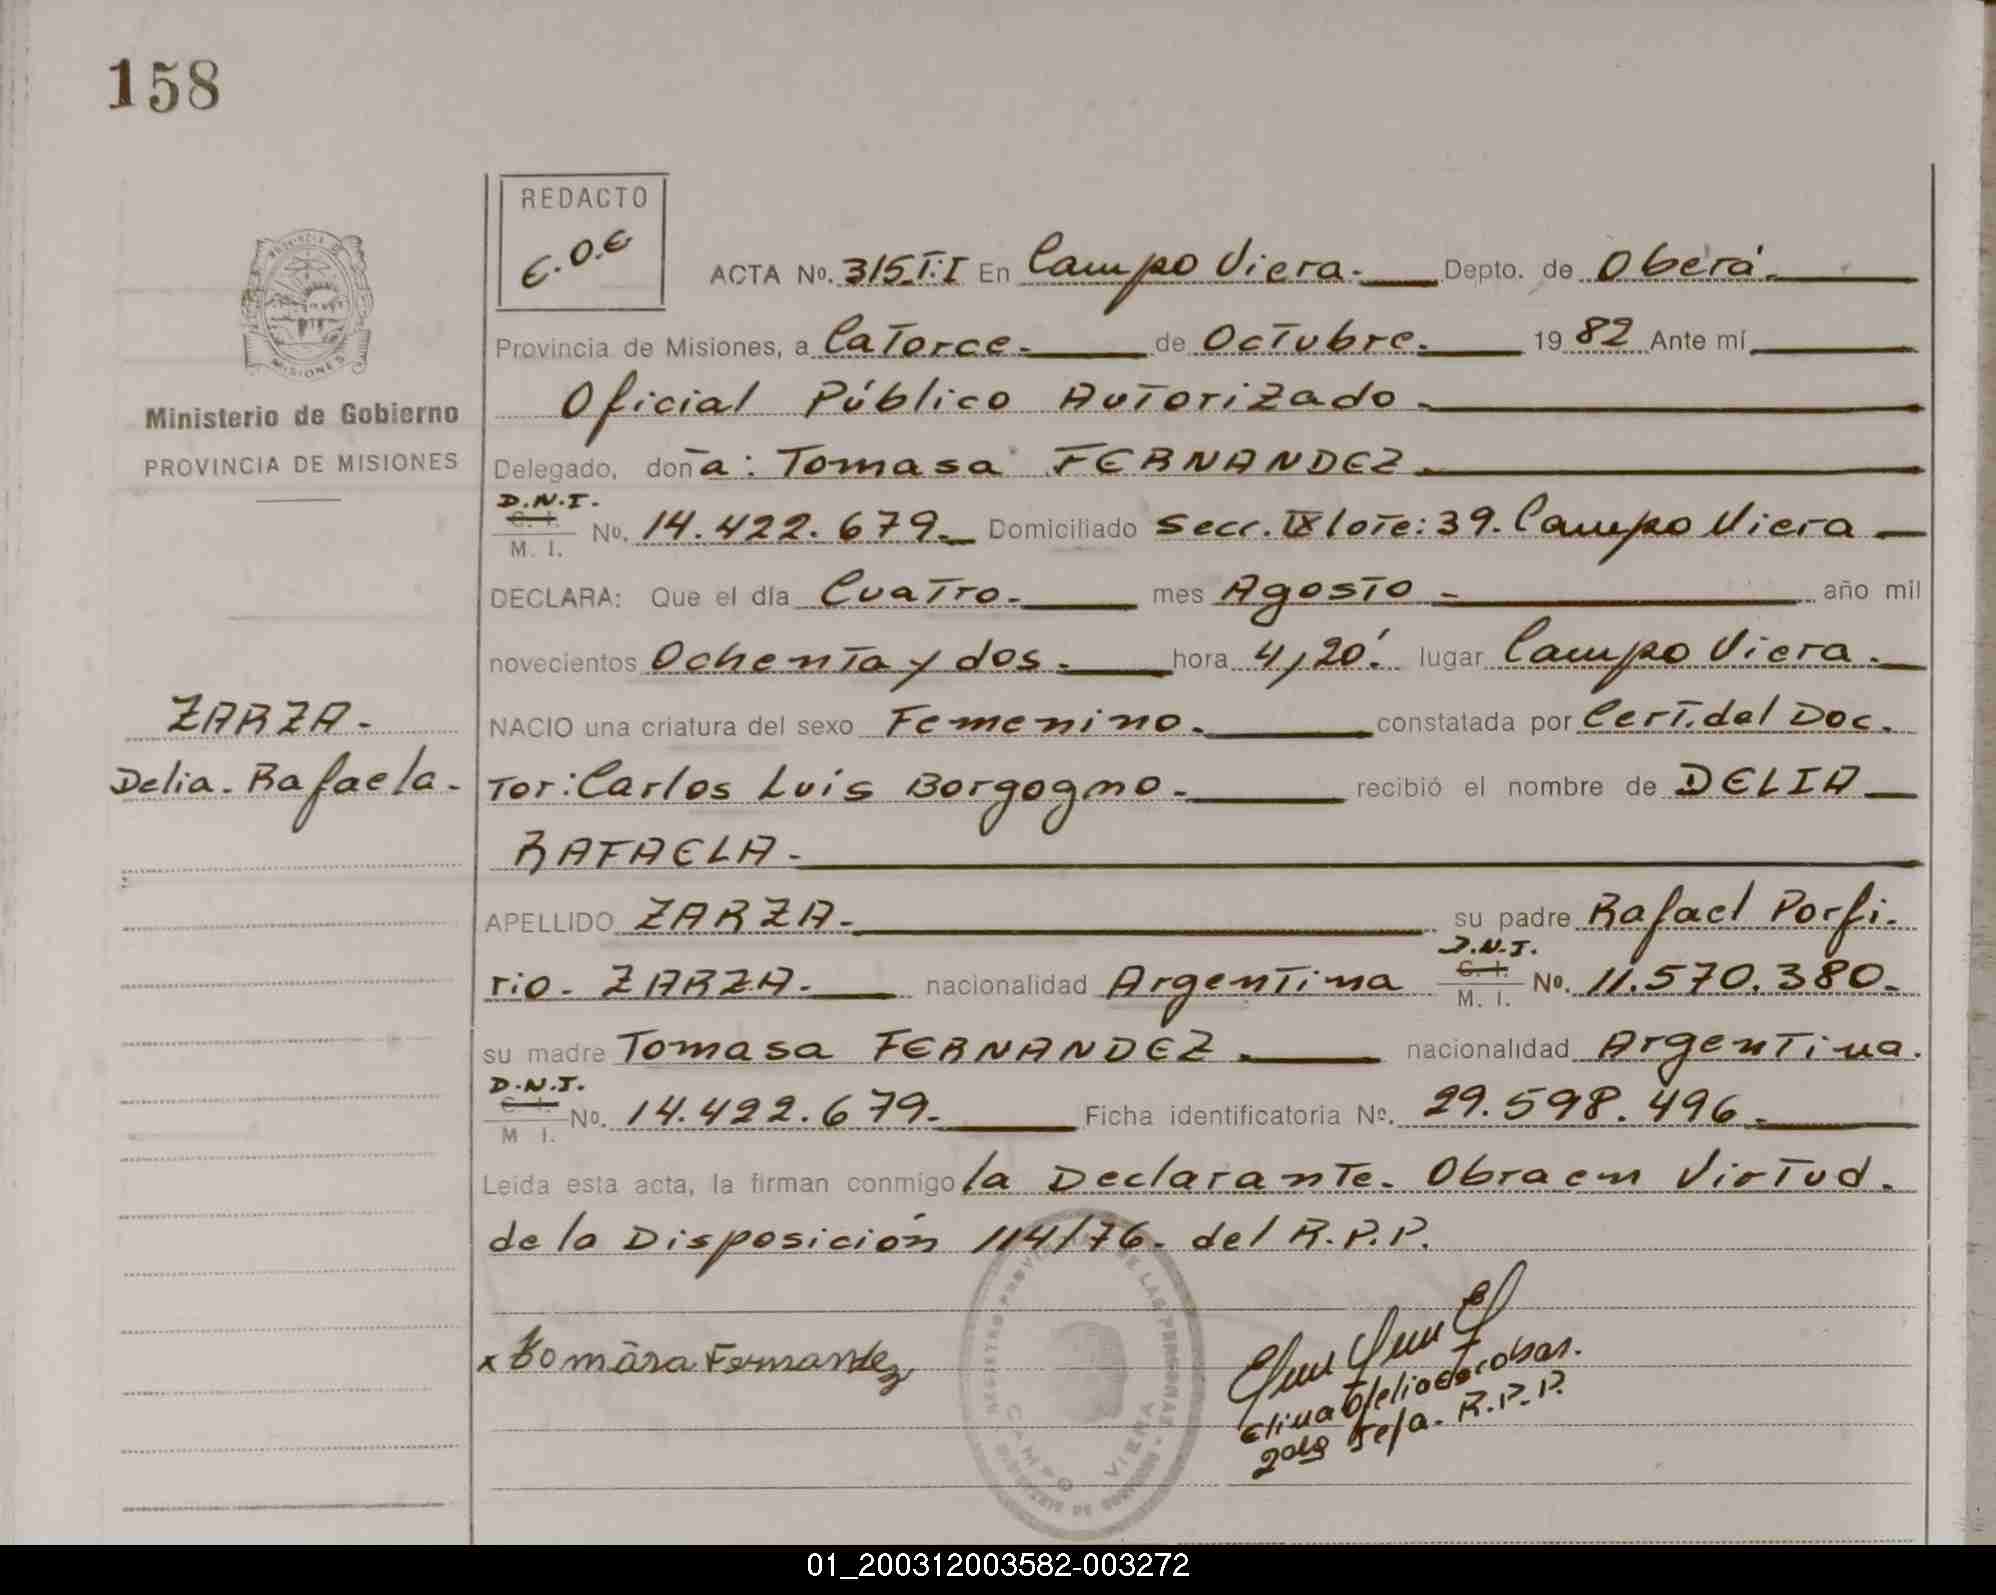 158
REDACTO
E.O.E
ACTA Nº. 315.T:I En Campo Viera. Depto. de Oberá.
Provincia de Misiones, a Catorce. de Octubre. 1982 Ante mí
Oficial Público Autorizado.
Ministerio de Gobierno
PROVINCIA DE MISIONES
Delegado, doña: Tomasa FERNANDEZ
D.N.I.
C. I.
M. I. Nº. 14.422.679. Domiciliado Secc. IX lote: 39. Campo Viera
DECLARA: Que el día Cuatro. mes Agosto - año mil
novecientos Ochenta y dos. hora 4,20'. lugar Campo Viera.
ZARZA-
NACIO una criatura del sexo Femenino. constatada por Cert. del Doc.
Delia. Rafaela.
Tor: Carlos Luis Borgogno. recibió el nombre de DELIA
RAFAELA-
APELLIDO ZARZA- su padre Rafael Porfi.
rio. ZARZA. nacionalidad Argentina D.N.I. C. I. M. I. Nº. 11.570.380.
su madre Tomasa FERNANDEZ. nacionalidad Argentina.
D.N.I.
C. I.
M I. Nº. 14.422.679. Ficha identificatoria Nº. 29.598.496.
Leida esta acta, la firman conmigo la Declarante. Obra en Virtud.
de la Disposición 114/76. del R.P.P.
x Tomasa Fernandez
CAMPO VIERA
Jefa. R.P.P.
01_200312003582-003272